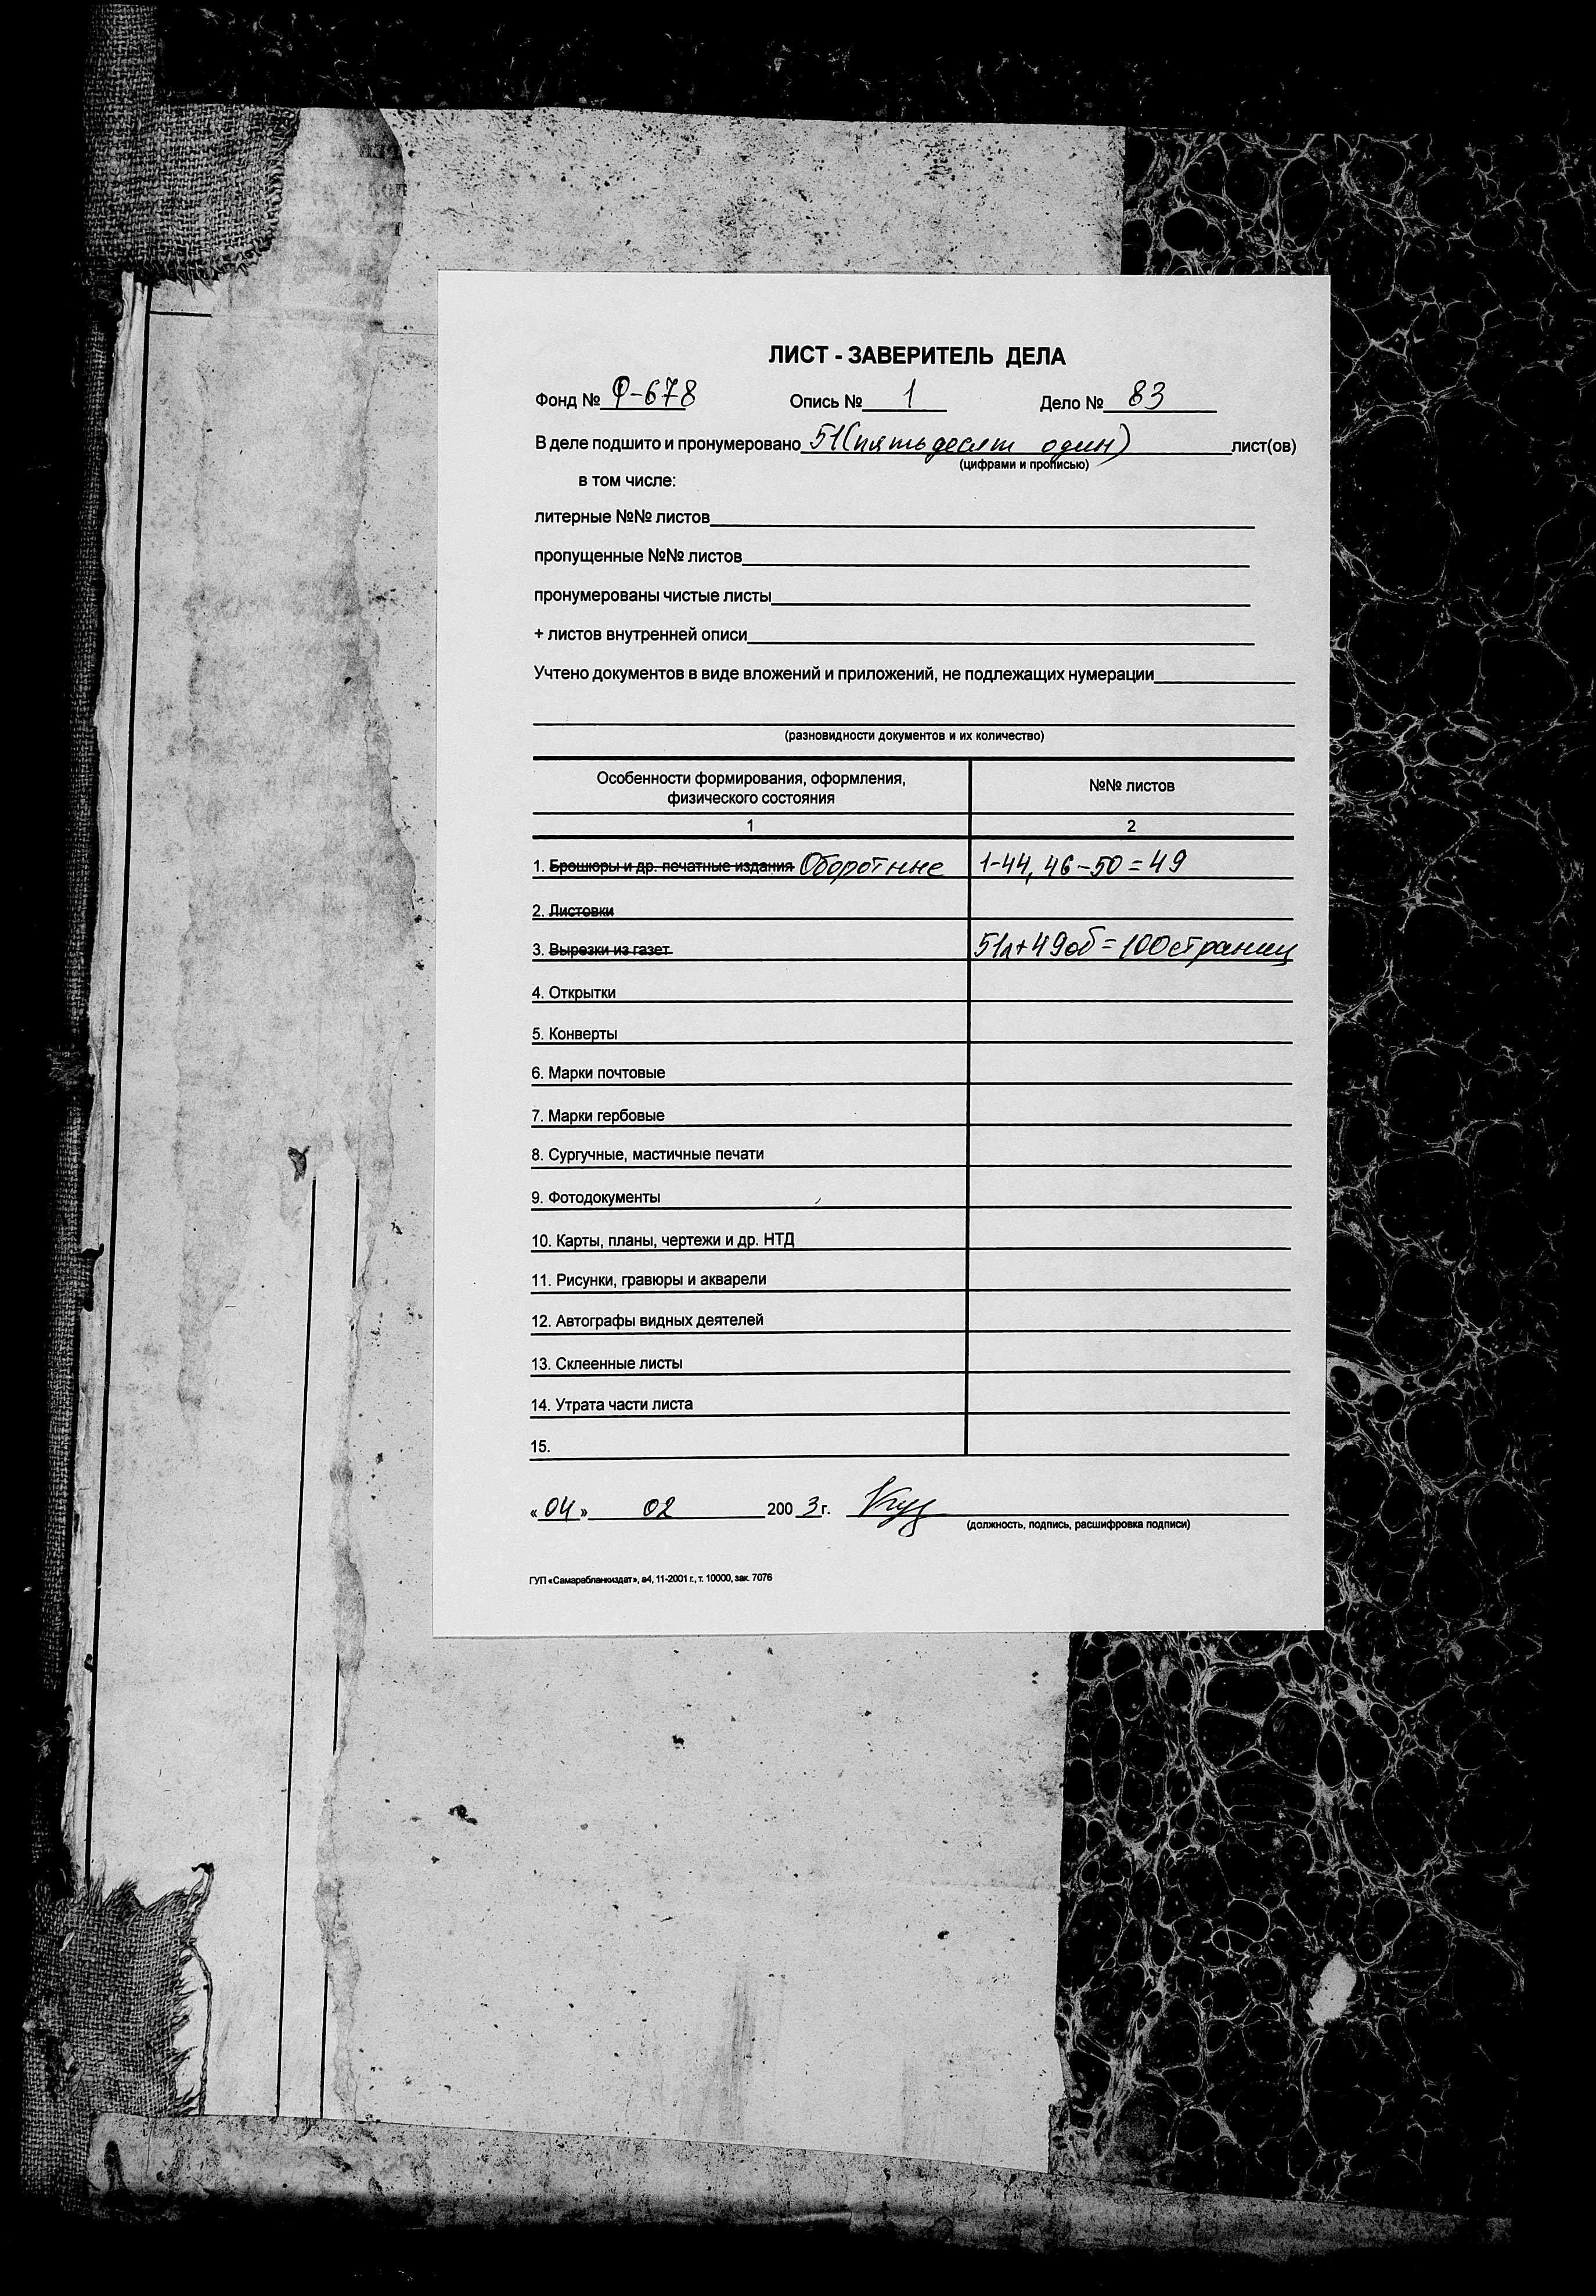 ЛИСТ - ЗАВЕРИТЕЛЬ ДЕЛА
Фонд № Ф-678 Опись № 1 Дело № 83
В деле подшито и пронумеровано 51 (пятьдесят один) лист(ов)
(цифрами и прописью)
в том числе:
литерные №№ листов
пропущенные №№ листов
пронумерованы чистые листы
+ листов внутренней описи
Учтено документов в виде вложений и приложений, не подлежащих нумерации
(разновидности документов и их количество)
Особенности формирования, оформления,
физического состояния
№№ листов
1 2
1. Брошюры и др. печатные издания Оборотные 1-44, 46-50 = 49
2. Листовки
3. Вырезки из газет 51л + 49об = 100 страниц
4. Открытки
5. Конверты
6. Марки почтовые
7. Марки гербовые
8. Сургучные, мастичные печати
9. Фотодокументы
10. Карты, планы, чертежи и др. НТД
11. Рисунки, гравюры и акварели
12. Автографы видных деятелей
13. Склеенные листы
14. Утрата части листа
15.
«04» 02 2003 г.
(должность, подпись, расшифровка подписи)
ГУП «Самарабланкиздат», а4, 11-2001 г., т. 10000, зак. 7076